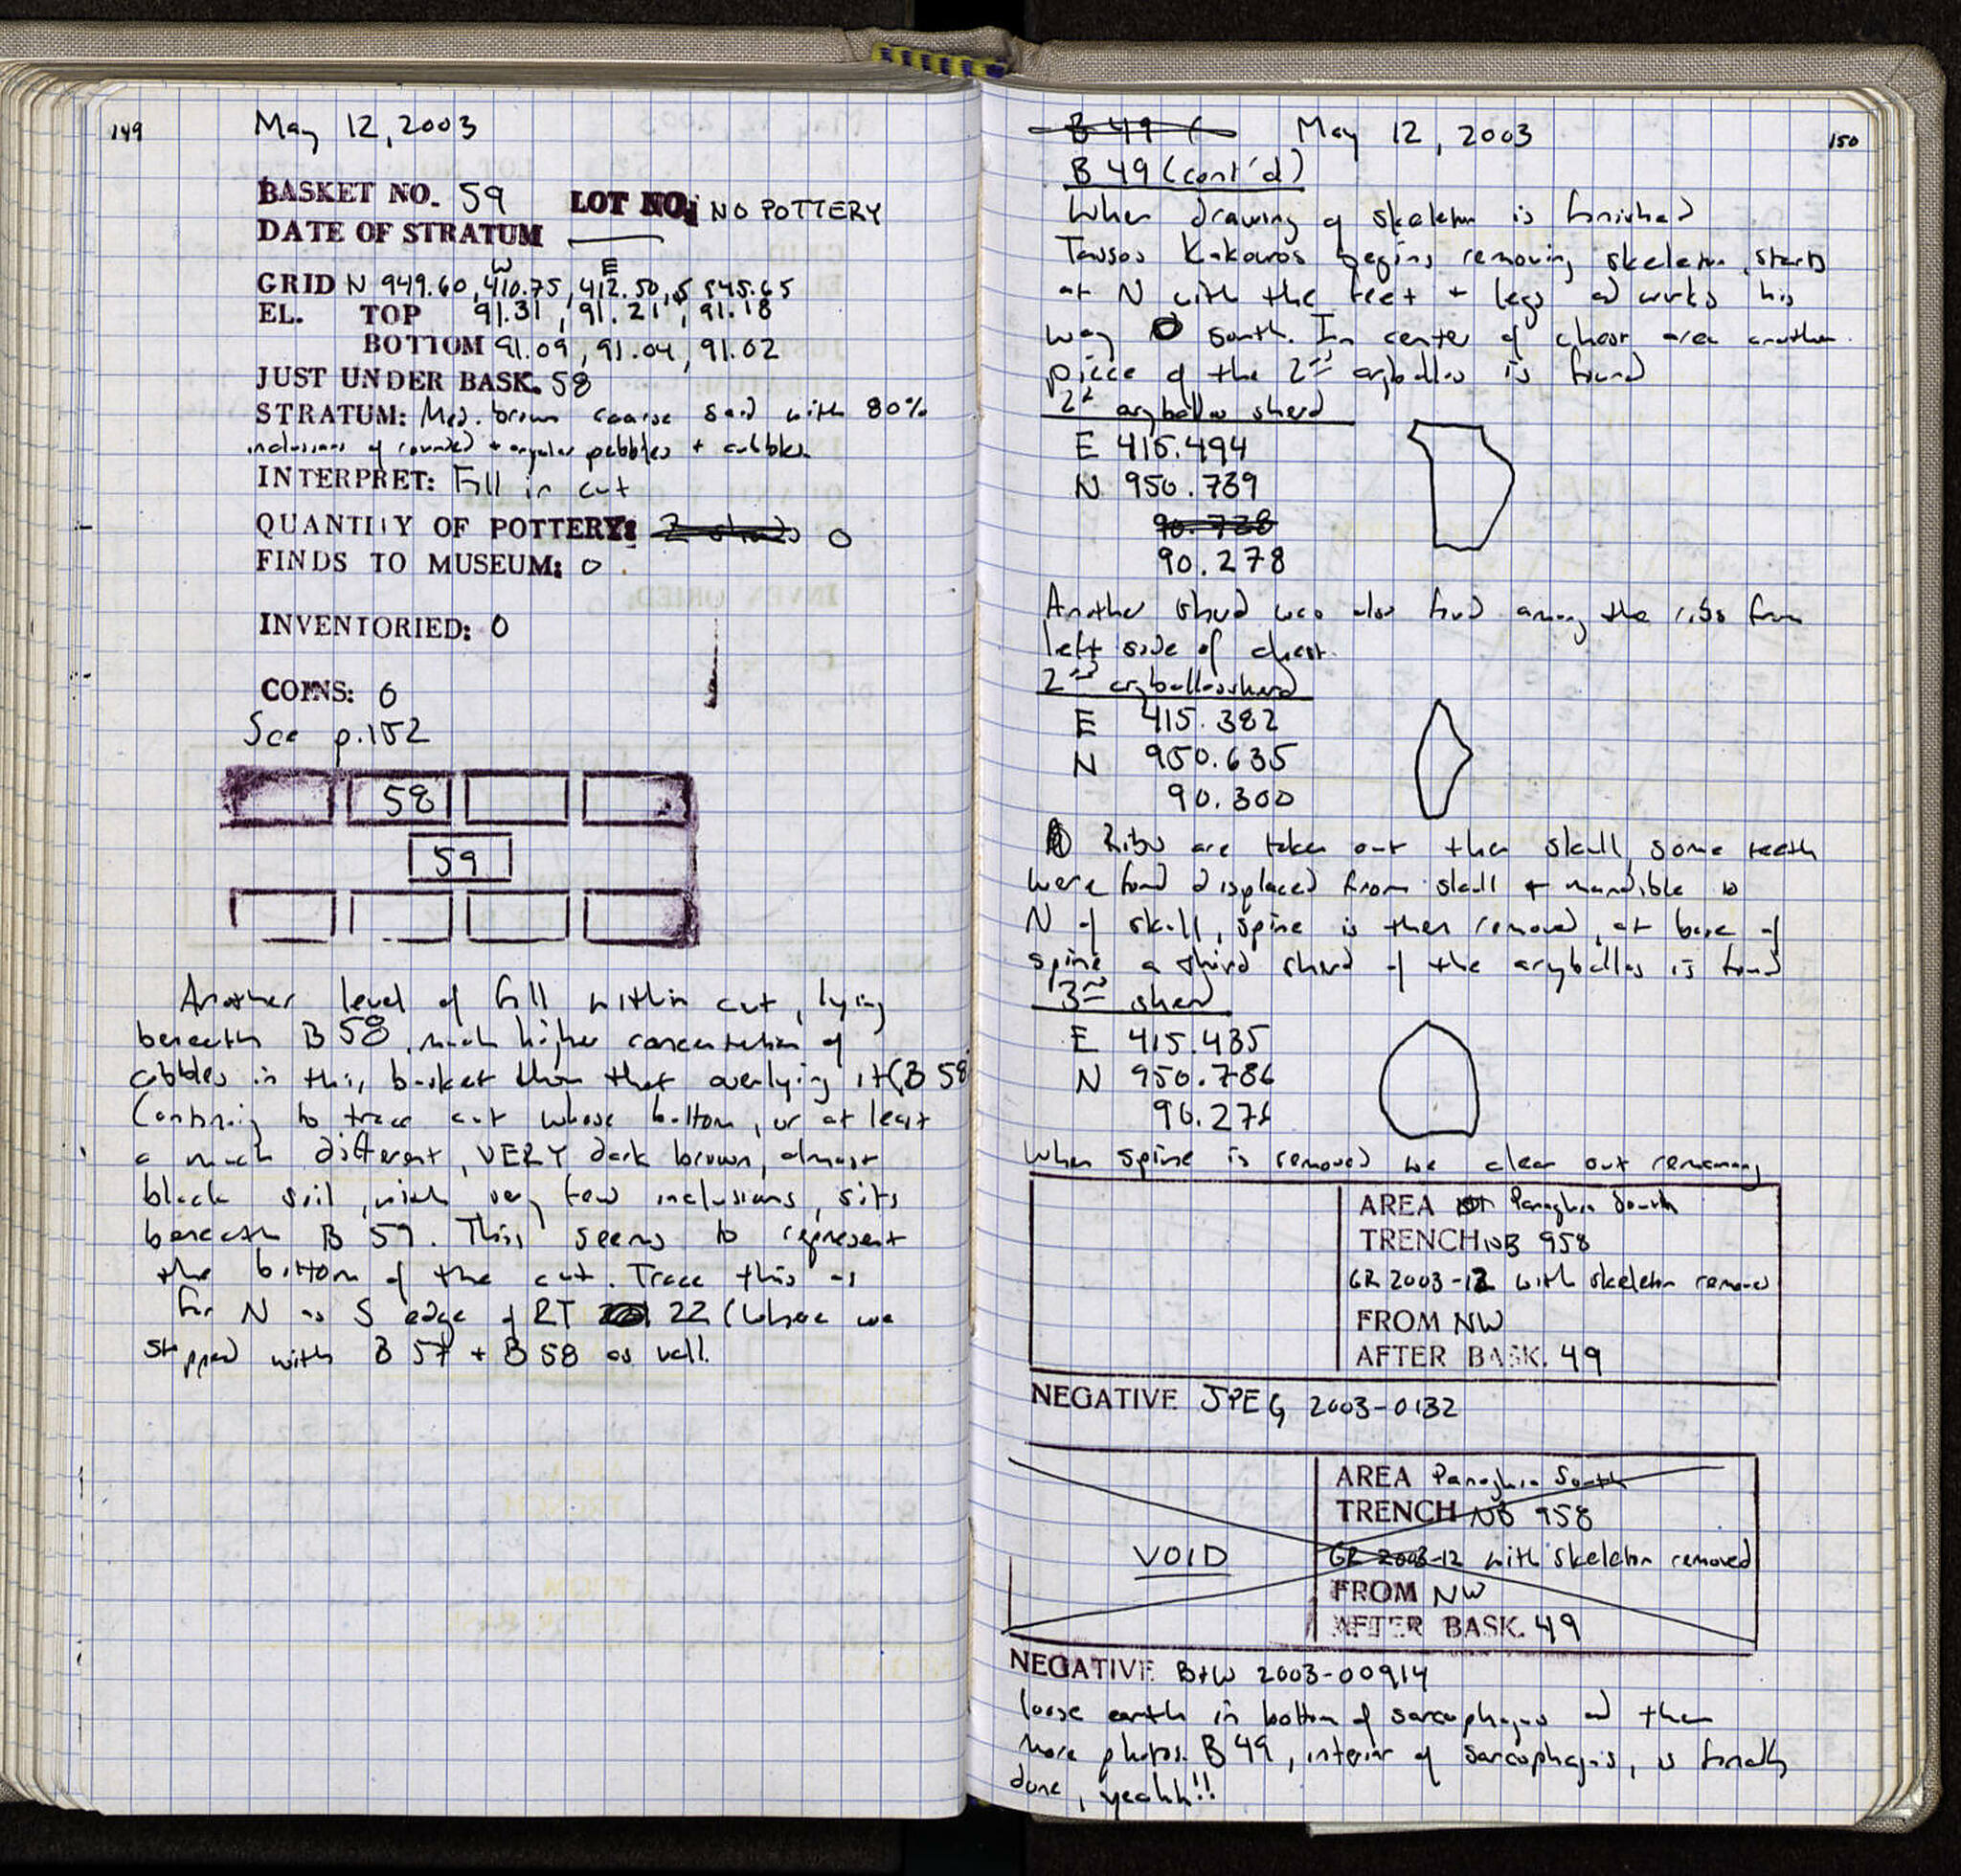 149
May 12, 2003
BASKET NO. 59 LOT NO: NO POTTERY
DATE OF STRATUM
W E
GRID N 949.60, 410.75, 412.50, S 945.65
EL. TOP 91.31, 91.21, 91.18
BOTTOM 91.09, 91.04, 91.02
JUST UNDER BASK. 58
STRATUM: Med. brown coarse sand with 80%
inclusions of rounded + angular pebbles + cobbles.
INTERPRET: Fill in cut
QUANTITY OF POTTERY: 2 sherds 0
FINDS TO MUSEUM: 0
INVENTORIED: 0
COINS: 0
See p.152
58
59
Another level of fill within cut, lying
beneath B 58, much higher concentration of
cobbles in this basket than that overlying it (B 58
Continuing to trace cut whose bottom, or at least
a much different, VERY dark brown, almost
black soil, with very few inclusions, sits
beneath B 59. This seems to represent
the bottom of the cut. Trace this as
far N as S edge of RT 22 (where we
stopped with B 57 + B 58 as well.
150
B 49 ( May 12, 2003
B 49 (cont'd)
When drawing of skeleton is finished
Tassos Kakouros begins removing skeleton, starts
at N with the feet + legs and works his
way south. In center of chest area another
piece of the 2nd aryballos is found
2nd aryballos sherd
E 415.494
N 950.739
90.728
90.278
Another sherd was also found among the ribs from
left side of chest.
2nd aryballos sherd
E 415.382
N 950.635
90.300
Ribs are taken out then skull, some teeth
were found displaced from skull + mandible to
N of skull, spine is then removed, at base of
spine a third sherd of the aryballos is found
3rd sherd
E 415.435
N 950.786
90.276
When spine is removed we clear out remaining
AREA Panaghia South
TRENCH NB 958
GR 2003-12 with skeleton removed
FROM NW
AFTER BASK. 49
NEGATIVE JPEG 2003-0132
AREA Panaghia South
TRENCH NB 958
VOID
GR 2003-12 with skeleton removed
FROM NW
AFTER BASK. 49
NEGATIVE B+W 2003-009,14
loose earth in bottom of sarcophagus and then
more photos. B 49, interior of sarcophagus, is finally
done, yeahh!!